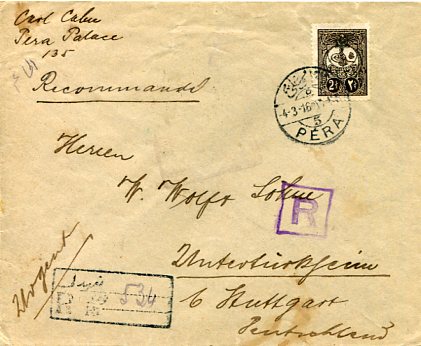 Carl Cahn
Pera Palace
135
Recommandé
4-3-16
5
PÉRA
2½
Herren
W. Wolf & Söhne
R
Untertürkheim
b/ Stuttgart
Deutschland
Urgent
R
534